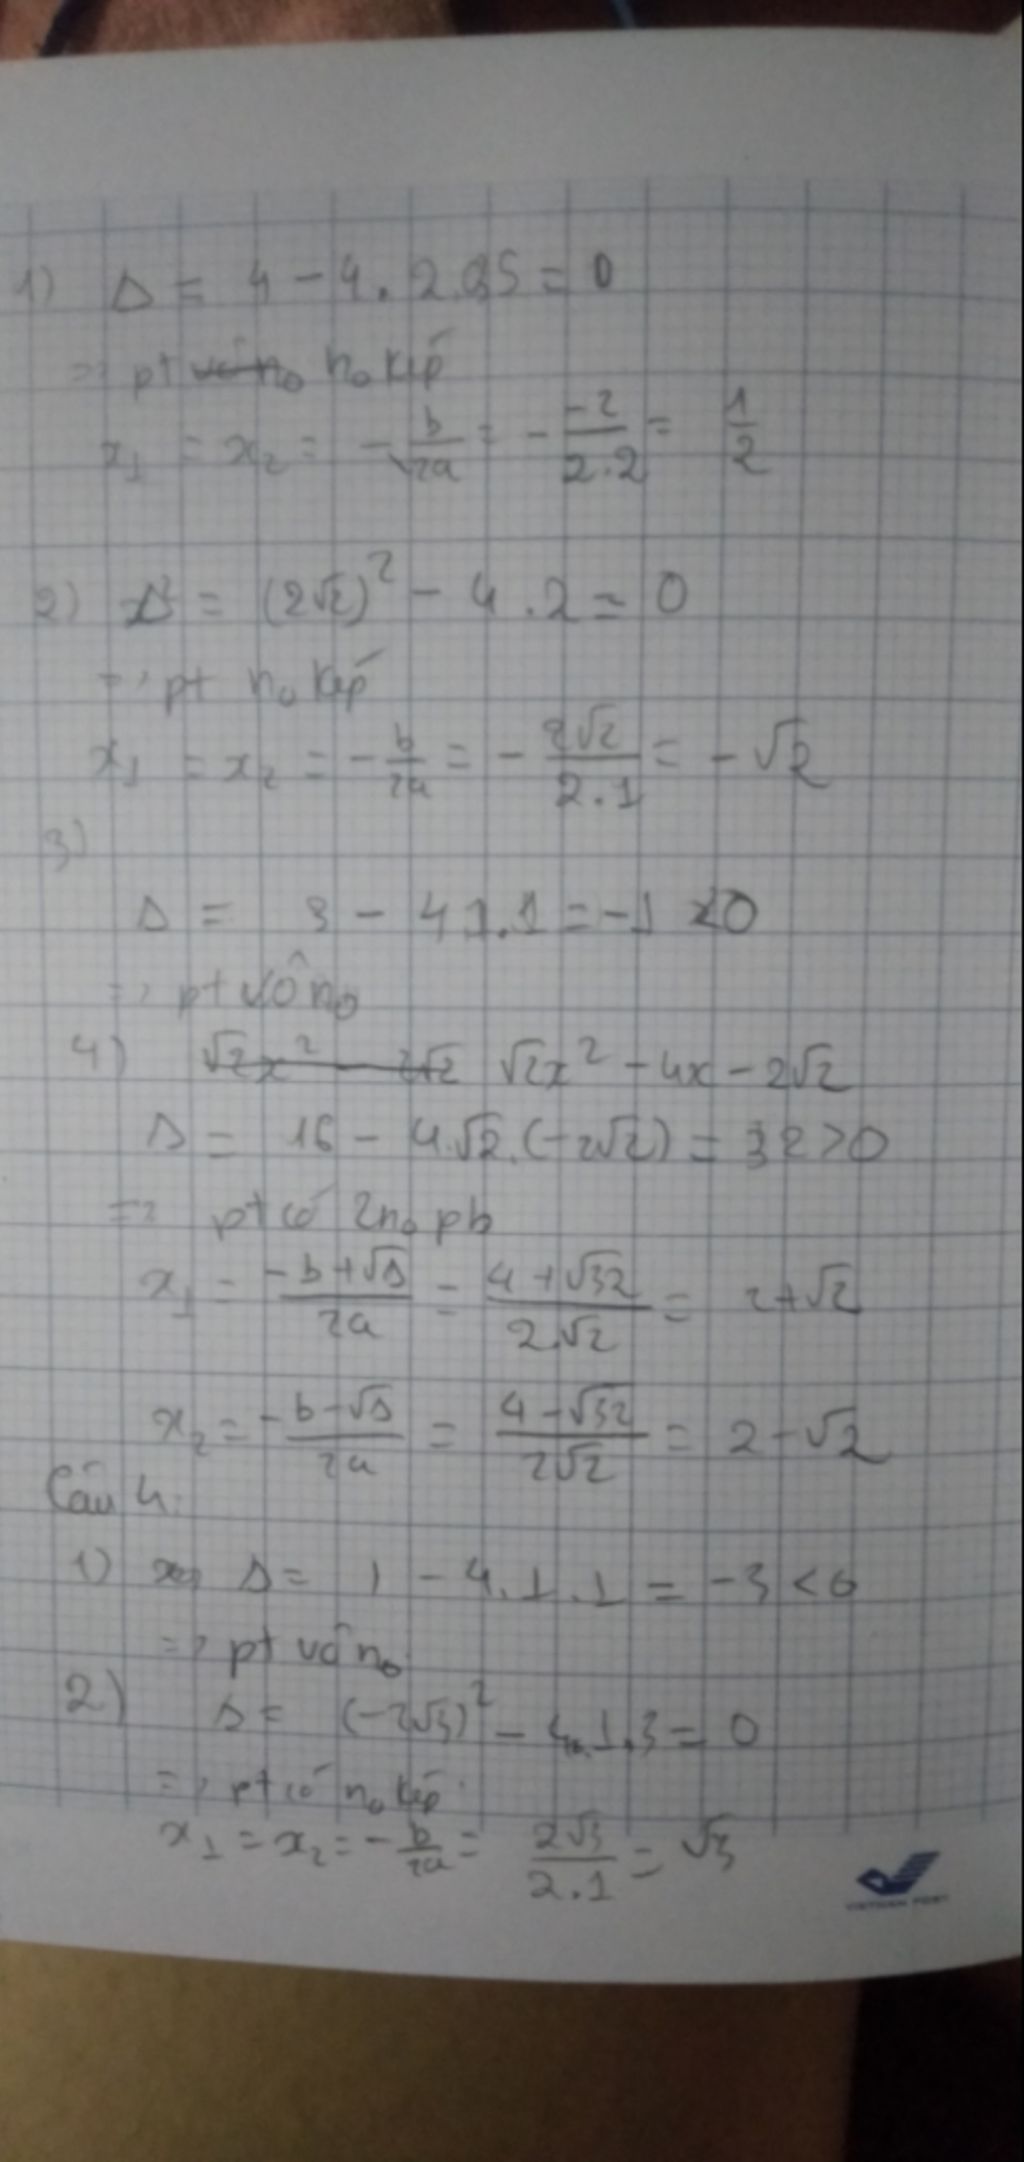 1) Δ = 4 - 4.2.0,5 = 0
=> pt no kép
x₁ = x₂ = -b/2a = - -2/2.2 = 1/2
2) Δ = (2√2)² - 4.2 = 0
=> pt no kép
x₁ = x₂ = -b/2a = - 2√2/2.1 = -√2
3)
Δ = 3 - 4.1.1 = -1 <0
=> pt vô no
4) √2x² - 2√2 √2x² - 4x - 2√2
Δ = 16 - 4.√2.(-2√2) = 32 > 0
=> pt có 2no pb
x₁ = -b+√Δ/2a = 4+√32/2√2 = 2+√2
x₂ = -b-√Δ/2a = 4-√32/2√2 = 2-√2
Câu 4:
1) Δ = 1 - 4.1.1 = -3 < 0
=> pt vô no
2) Δ = (-2√3)² - 4.1.3 = 0
=> pt có no kép
x₁ = x₂ = -b/2a = 2√3/2.1 = √3
VIETNAM POST